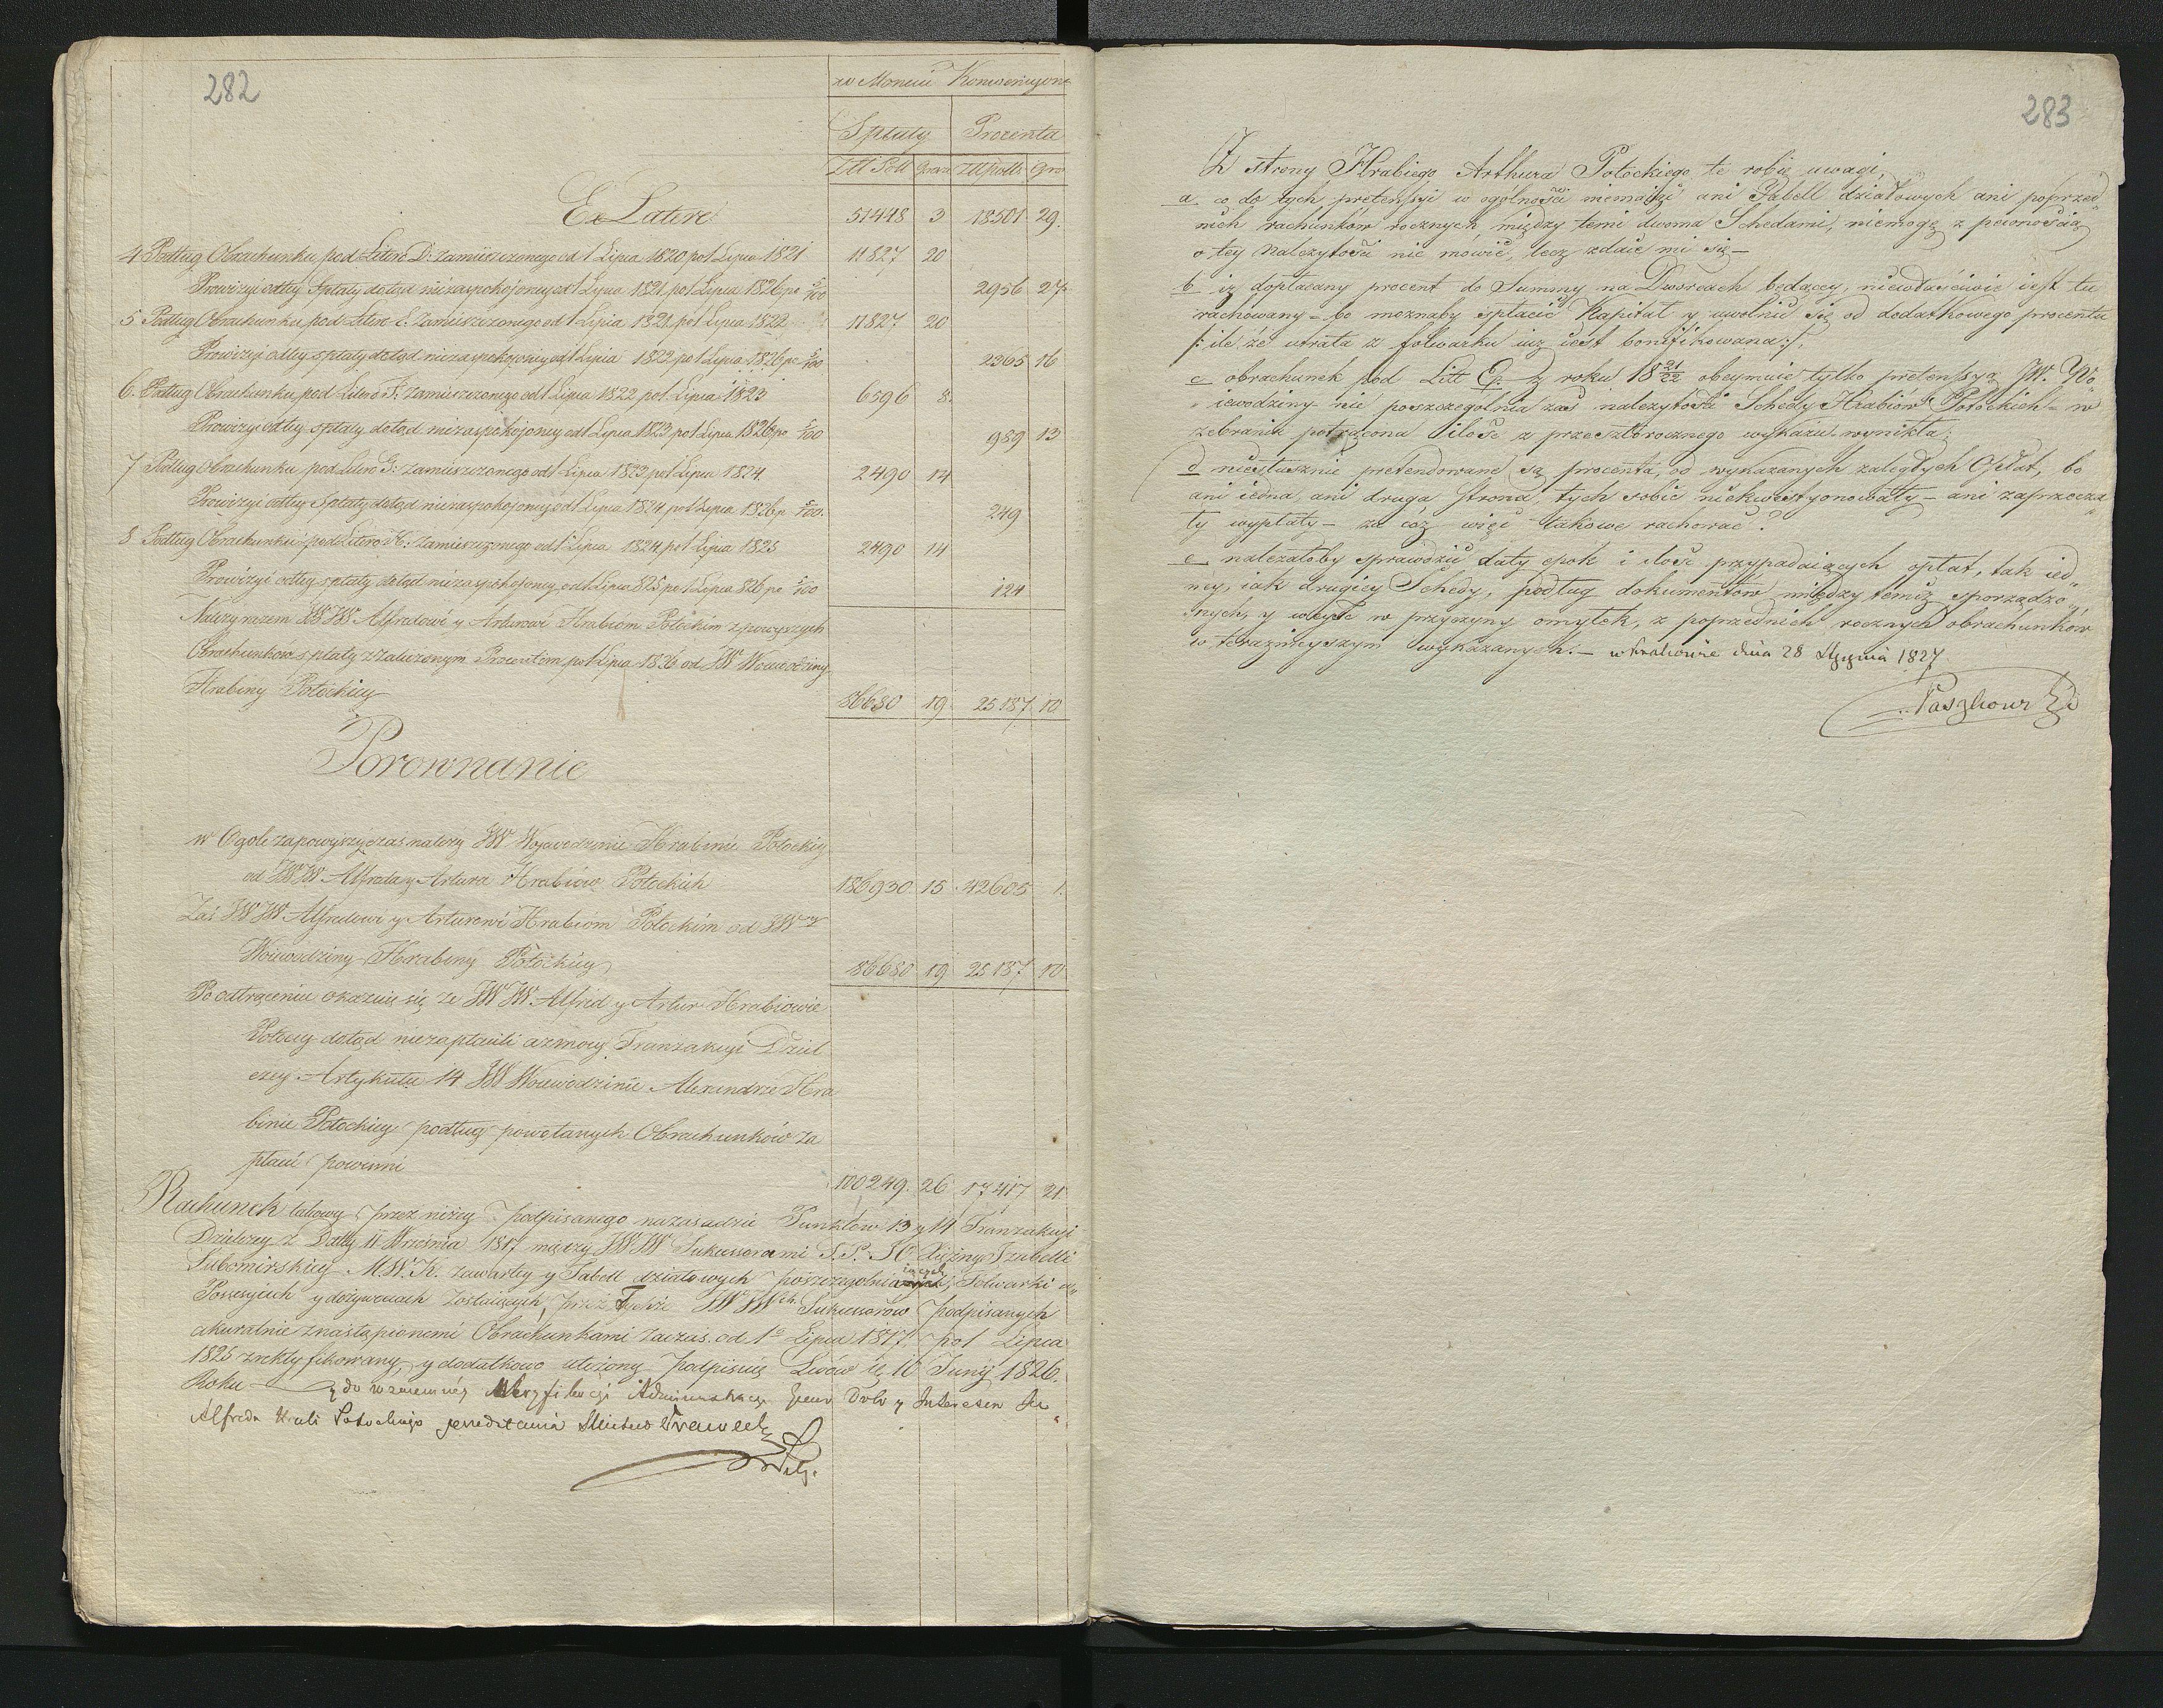 282
w Monecie Konwencyon
Spłaty Procenta
Złł Poll Grosz Złł polls Gro
Ex Latere 51448 3 18501 29.
4 Podług Obrachunku pod Literą D: zamieszczonego od 1 Lipca 1820 po 1 Lipca 1821 11827 20
Prowizyi od tey Spłaty dotąd niezaspokojoney od 1 Lipca 1821 po 1 Lipca 1826 po 5/100 2956 27
5 Podług Obrachunku pod Literą E. zamieszczonego od 1 Lipca 1821 po 1 Lipca 1822 11827 20
Prowizyi od tey spłaty dotąd niezaspokojoney od 1 Lipca 1822 po 1 Lipca 1826 po 5/100 2365 16
6. Podług Obrachunku pod Literą F: zamieszczonego od 1 Lipca 1822 po 1. Lipca 1823 6596 8.
Prowizyi od tey spłaty dotąd niezaspokojoney od 1 Lipca 1823 po 1 Lipca 1826 po 5/100 989 13
7 Podług Obrachunku pod Literą G: zamieszczonego od 1 Lipca 1823 po 1 Lipca 1824. 2490 14
Prowizyi od tey Spłaty dotąd niezaspokojoney od 1 Lipca 1824 po 1 Lipca 1826 p. 5/100. 249
8 Podług Obrachunku pod Literą H: zamieszczonego od 1 Lipca 1824 po 1 Lipca 1825 2490 14
Prowizyi od tey spłaty dotąd niezaspokojoney od 1 Lipca 825 po 1 Lipca 826 po 5/100 124
Należy razem JW JW Alfredowi y Arturowi Hrabiom Potockim z powyzszych
Obrachunkow spłaty z zaliczonym Procentem po 1 Lipca 1826 od JW Woiewodziny
Hrabiny Potockiey 86680 19 25187 10
Porownanie
w Ogole za powyzszy czas nalezy JW Wojewodzinie Hrabinie Potockiey
od JW JW Alfreda y Artura Hrabiow Potockich 186930 15 42605 1.
Zaś JW JW Alfredowi y Arturowi Hrabiom Potockim od JW ney
Woiewodziny Hrabiny Potockiey 86680 19 25187 10
Po odtrąceniu okazuie się że JW JW. Alfred y Artur Hrabiowie
Potoccy dotąd niezapłacili a z mocy Tranzakcyi Dział
czey Artykułu 14 JW Woiewodzinie Alexandrze Hra
binie Potockiey podług powołanych Obrachunków za
płacić powinni 100249. 26 17417 21
Rachunek takowy przez niżey podpisanego na zasadzie Punktow 13 y 14 Tranzakcyi
Dziełczey z Datty 11 Września 1817 między JW JW Sukcessorami S.P. JO Xiężny Izabelli
Lubomirskiey M.W.K. zawartey y Tabell działowych poszczegolniaiących, Folwarki w
Possesyiach y dożywociach zostaiących, przez Tychże JW JWch. Sukcessorow podpisanych
akuratnie z nastąpionemi Obrachunkami zaczas. od 1o Lipca 1817. po 1 Lipca
1825 zrektyfikowany, y dodatkowo ułożony podpisuię Lwów d. 10 Junij 1826.
Roku y do wzaiemney Weryfikacyi Administracyi Dobr y Interesow
Alfreda Hrabi Potockiego
283
Z strony Hrabiego Arthura Potockiego te robię uwagi,
a co do tych pretensyi w ogólności niemaiąc ani Tabell działowych ani poprzed„
nich rachunków rocznych między temi dwoma Schedami, niemogę z pewnością
o tey należytości nic mówić, lecz zdaie mi się —
b iż dopłacany procent do Summy na Dworcach będącey, niewłaściwie iest tu
rachowany — bo możnaby spłacić Kapitał y uwolnić się od dodatkowego procentu
/: ile że utrata z folwarku iuż iest bonifikowana :/.
c obrachunek pod Litt E. z roku 18 21/22 obeymuie tylko pretensyą JW. Wo„
iewodziny nie poszczególnia zaś należytości Schedy Hrabiów Potockich — w
zebraniu potrącona ilość z przeszłorocznego wykazu wynikła.
d niesłusznie pretendowane są procenta, od wykazanych zaległych Opłat, bo
ani iedna, ani druga Strona, tych sobie niekwestyonowały — ani zaprzecza„
ły wypłaty — za cóż więc takowe rachować?
e należałoby sprawdzić daty epok i ilość przypadaiących opłat, tak ied„
ney, iak drugiey Schedy, podług dokumentów między temiż sporządzo„
nych, y weyść w przyczyny omyłek, z poprzednich rocznych obrachunków
w teraznieyszym wykazanych. — w Krakowie dnia 28 Stycznia 1827.